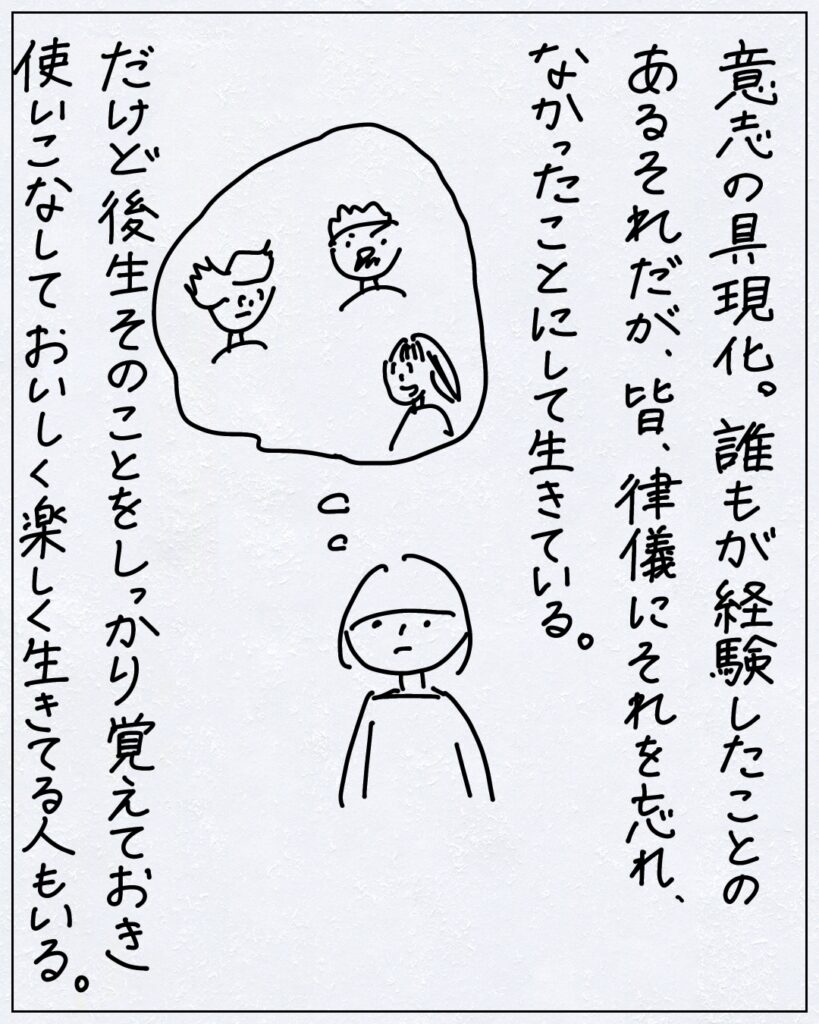 意志の具現化。誰もが経験したことの
あるそれだが、皆、律儀にそれを忘れ、
なかったことにして生きている。
だけど後生そのことをしっかり覚えておき、
使いこなしておいしく楽しく生きてる人もいる。